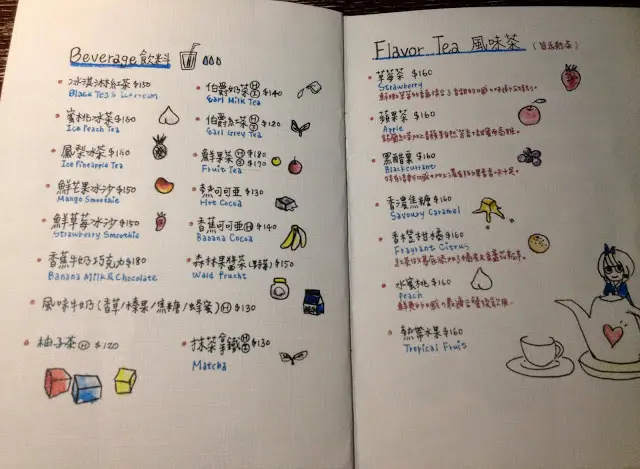 Beverage 飲料
冰淇淋紅茶 $150
Black Tea & Icecream
蜜桃冰茶 $160
Ice Peach Tea
鳳梨冰茶 $140
Ice Pineapple Tea
鮮芒果冰沙 $150
Mango Smoothie
鮮草莓冰沙 $150
Strawberry Smoothie
香蕉牛奶巧克力 $180
Banana Milk & Chocolate
風味牛奶(香草/榛果/焦糖/蜂蜜) Ⓗ $130
柚子茶 Ⓗ $120
伯爵奶茶 $140
Earl Milk Tea
伯爵紅茶 $120
Earl Grey Tea
鮮果茶 Ⓗ $180
Ⓘ $170
Fruit Tea
熱可可亞 $130
Hot Cocoa
香蕉可可亞 Ⓗ $140
Banana Cocoa
森林果醬茶 $150
Wald frucht
抹茶拿鐵 $130
Matcha
Flavor Tea 風味茶
草莓茶 $160
Strawberry
蘋果茶 $160
Apple
黑醋栗 $160
Blackcurrant
香濃焦糖 $160
Savoury Caramel
香橙柑橘 $160
Fragrant Citrus
水蜜桃 $160
Peach
熱帶水果 $160
Tropical Fruit